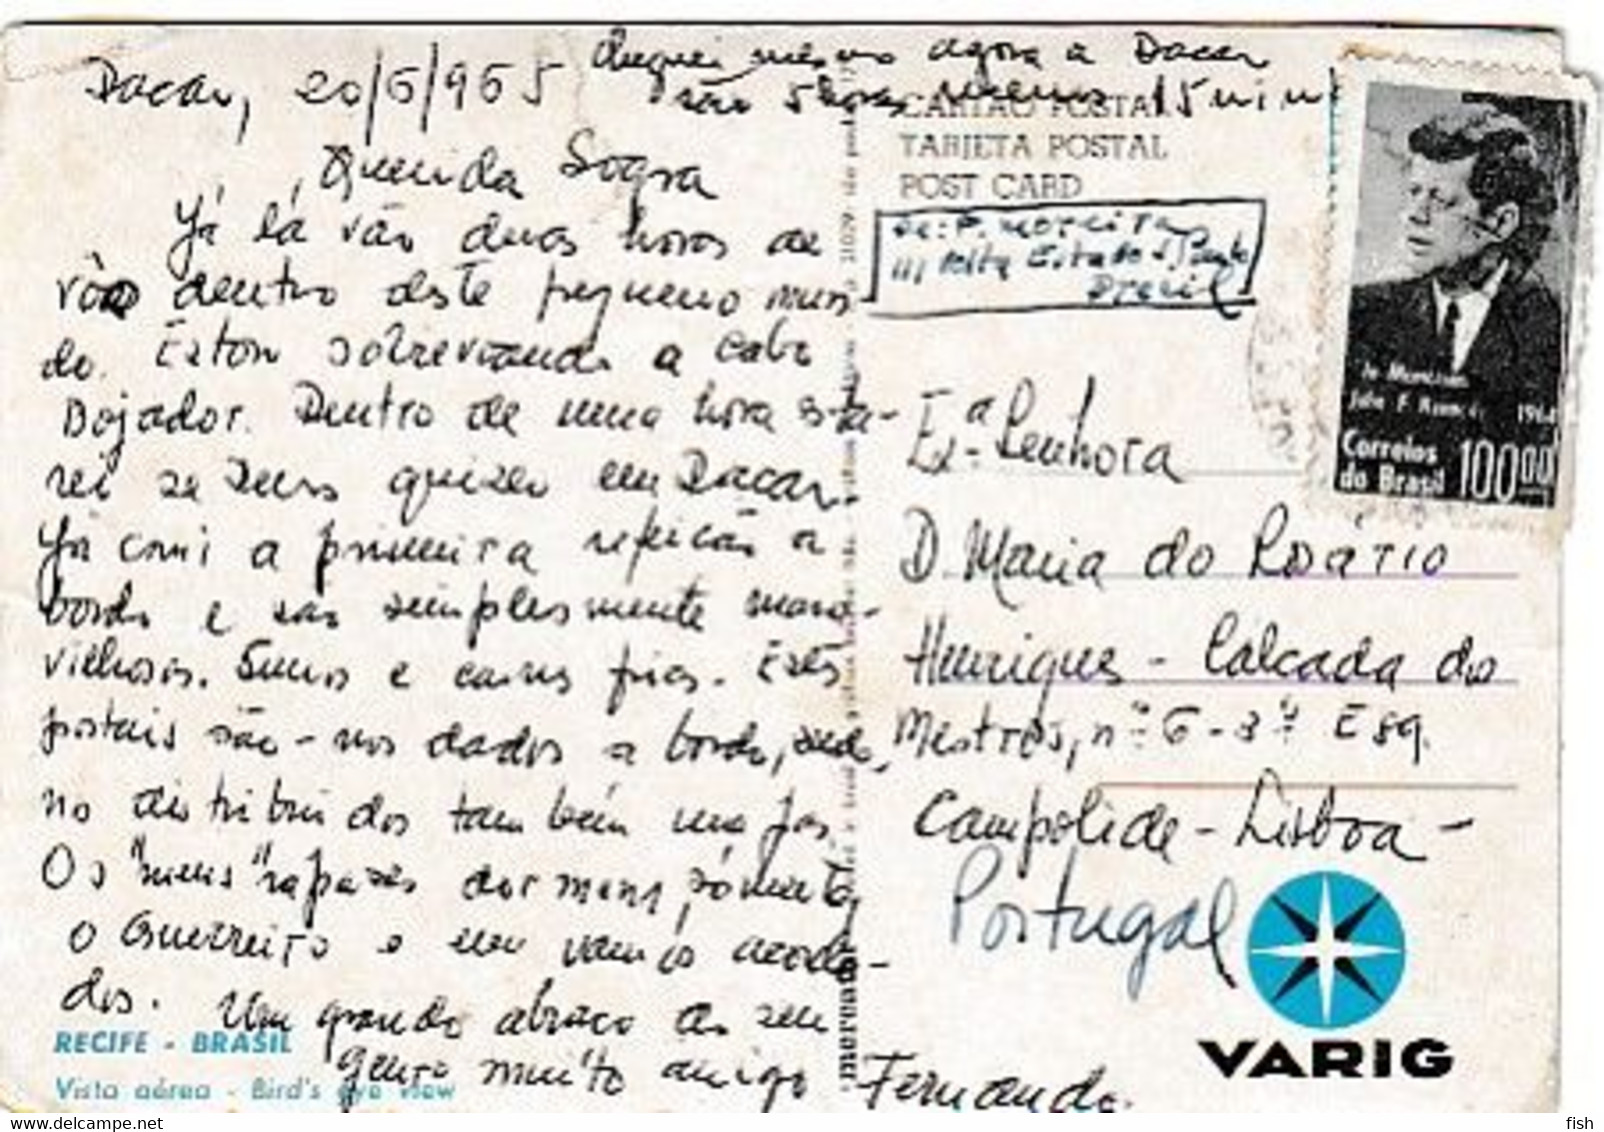 Dacar, 20/6/965
Cheguei mesmo agora a Dacar
são 5 horas menos 15 min
CARTÃO POSTAL
TARJETA POSTAL
POST CARD
Querida Sogra
Já lá vão duas horas de
vôo dentro deste pequeno mun
do. Estou sobrevoando a cabo
Bojador. Dentro de uma hora esta-
rei se Deus quizer em Dacar.
Já comi a primeira refeição a
bordo e são simplesmente mara-
vilhosos. Sumos e carnes frias. Estes
postais são-nos dados a bordo, sedo,
no distribuidos também
Os "meus" rapazes dormem, sómente
o Guerreiro e eu vamos acorda-
dos. Um grande abraço do seu
genro muito amigo Fernando.
RECIFE - BRASIL
Vista aérea - Bird's eye view
Re: F. Moreira
Estado S. Paulo
Brasil
In Memoriam
John F. Kennedy 1964
Correios
do Brasil 100,00
Ex.ª Senhora
D. Maria do Rosário
Henriques - Calçada dos
Mestres, nº 6 - 3º Esq.
Campolide - Lisboa -
Portugal
VARIG
delcampe.net
fish